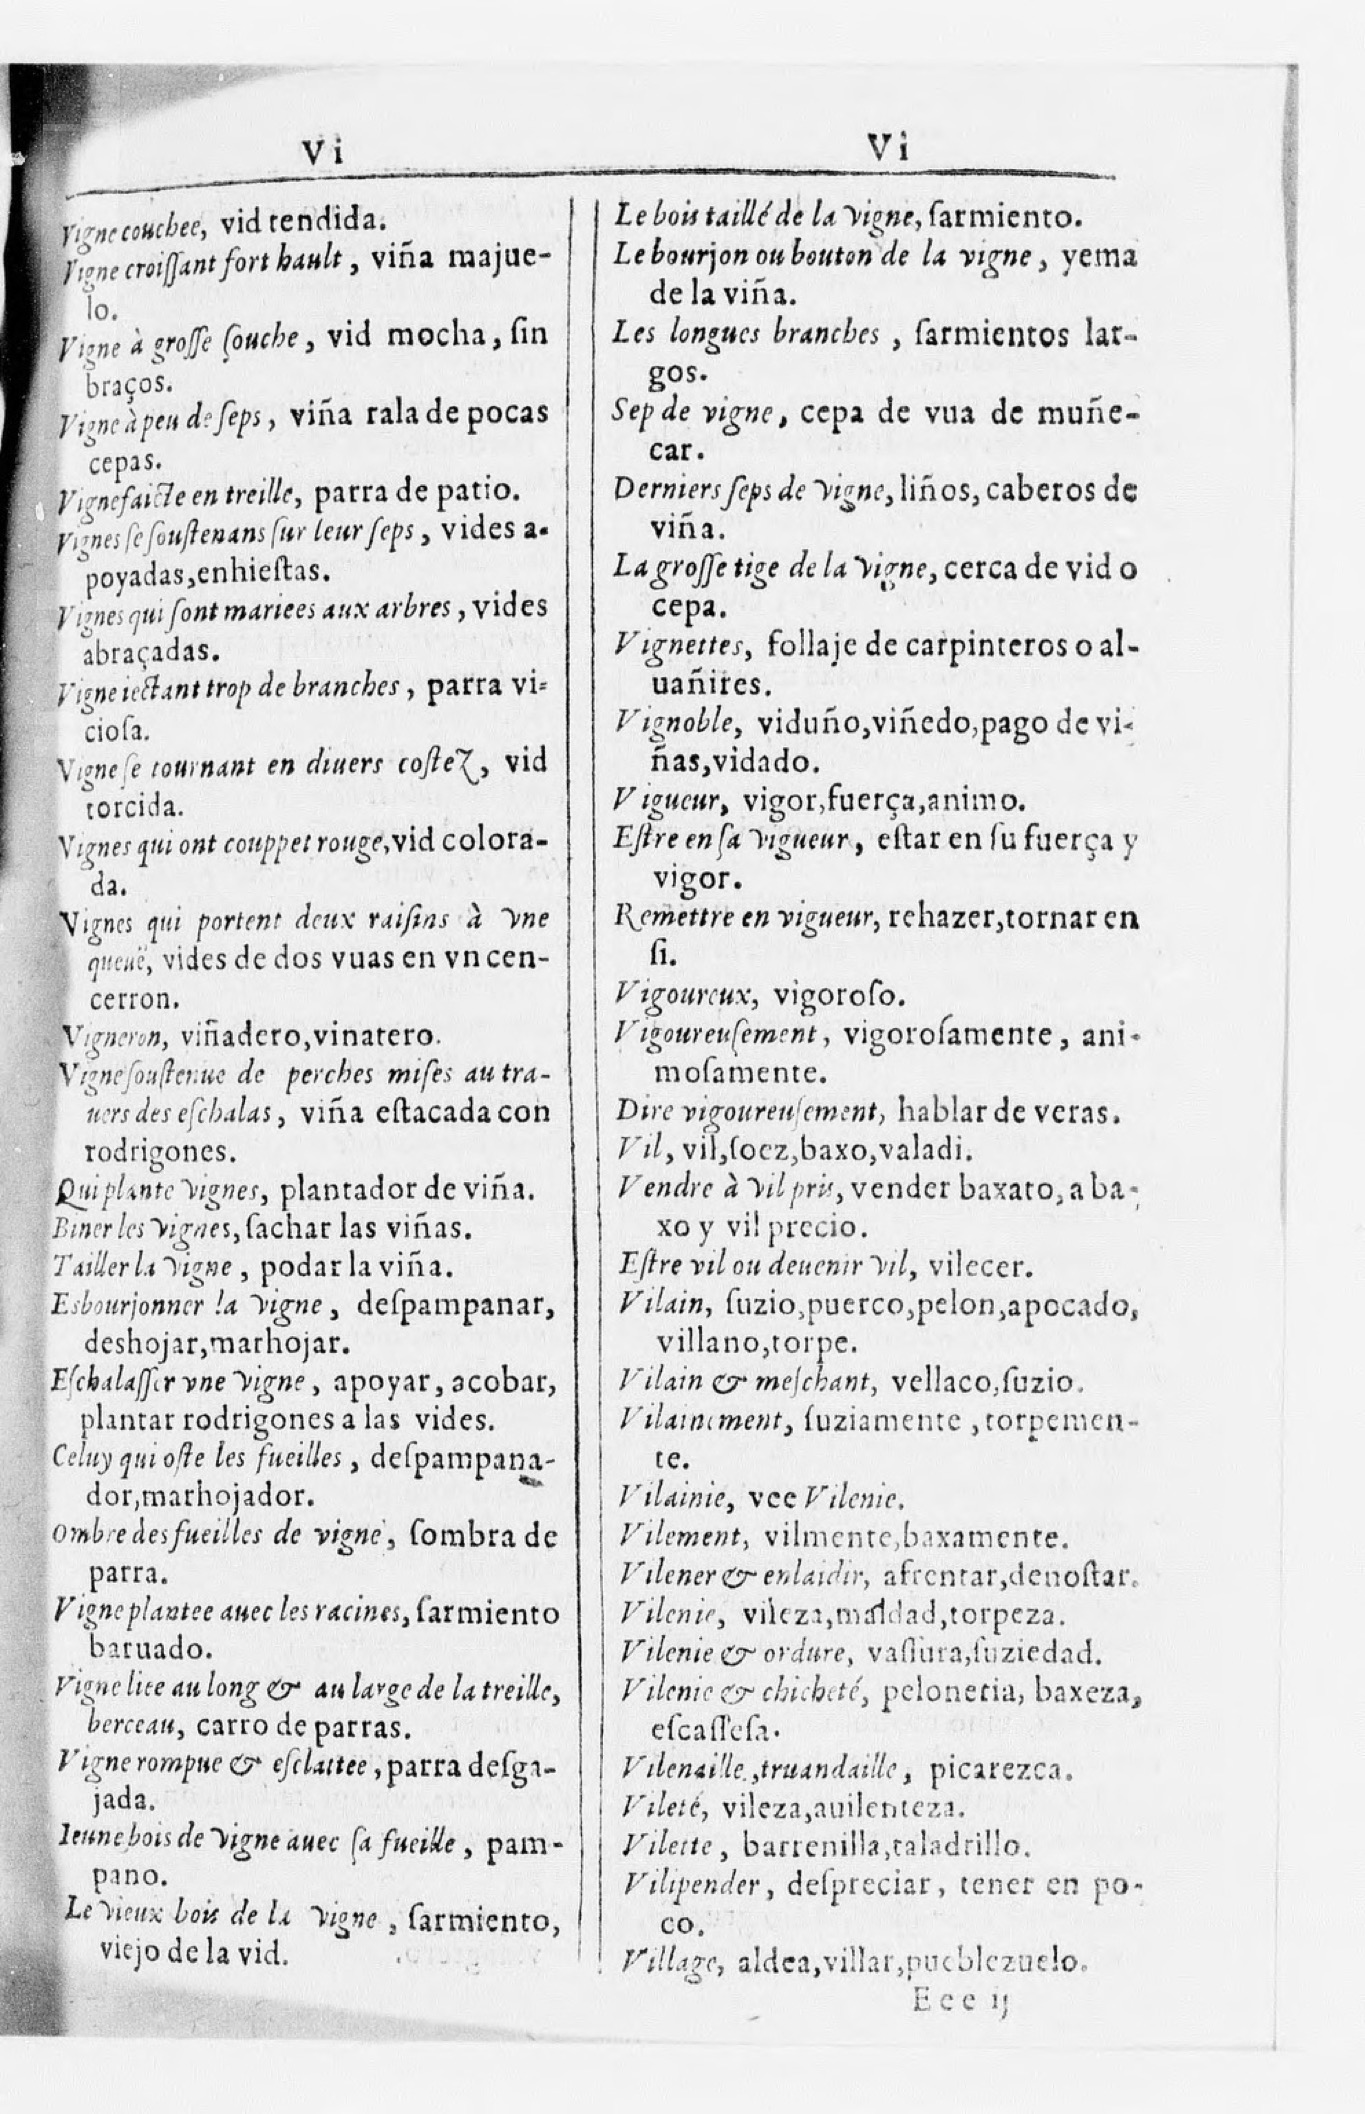 Vi
Vigne couchee, vid tendida.
Vigne croissant fort hault, viña majue-
lo.
Vigne à grosse souche, vid mocha, sin
braços.
Vigne à peu de seps, viña rala de pocas
cepas.
Vigne faicte en treille, parra de patio.
Vignes se soustenans sur leur seps, vides a-
poyadas, enhiestas.
Vignes qui sont mariees aux arbres, vides
abraçadas.
Vigne iectant trop de branches, parra vi-
ciosa.
Vigne se tournant en diuers costez, vid
torcida.
Vignes qui ont couppet rouge, vid colora-
da.
Vignes qui portent deux raisins à vne
queuë, vides de dos vuas en vn cen-
cerron.
Vigneron, viñadero, vinatero.
Vigne soustenue de perches mises au tra-
uers des eschalas, viña estacada con
rodrigones.
Qui plante vignes, plantador de viña.
Biner les vignes, sachar las viñas.
Tailler la vigne, podar la viña.
Esbourjonner la vigne, despampanar,
deshojar, marhojar.
Eschalasser vne vigne, apoyar, acobar,
plantar rodrigones a las vides.
Celuy qui oste les fueilles, despampana-
dor, marhojador.
Ombre des fueilles de vigne, sombra de
parra.
Vigne plantee auec les racines, sarmiento
baruado.
Vigne liee au long & au large de la treille,
berceau, carro de parras.
Vigne rompue & esclattee, parra desga-
jada.
Ieune bois de vigne auec sa fueille, pam-
pano.
Le vieux bois de la vigne, sarmiento,
viejo de la vid.
Vi
Le bois taillé de la vigne, sarmiento.
Le bourjon ou bouton de la vigne, yema
de la viña.
Les longues branches, sarmientos lar-
gos.
Sep de vigne, cepa de vua de muñe-
car.
Derniers seps de vigne, liños, caberos de
viña.
La grosse tige de la vigne, cerca de vid o
cepa.
Vignettes, follaje de carpinteros o al-
uañires.
Vignoble, viduño, viñedo, pago de vi-
ñas, vidado.
Vigueur, vigor, fuerça, animo.
Estre en sa vigueur, estar en su fuerça y
vigor.
Remettre en vigueur, rehazer, tornar en
si.
Vigoureux, vigoroso.
Vigoureusement, vigorosamente, ani-
mosamente.
Dire vigoureusement, hablar de veras.
Vil, vil, soez, baxo, valadi.
Vendre à vil pris, vender baxato, a ba-
xo y vil precio.
Estre vil ou deuenir vil, vilecer.
Vilain, suzio, puerco, pelon, apocado,
villano, torpe.
Vilain & meschant, vellaco, suzio.
Vilainement, suziamente, torpemen-
te.
Vilainie, vee Vilenie.
Vilement, vilmente, baxamente.
Vilener & enlaidir, afrentar, denostar.
Vilenie, vileza, maldad, torpeza.
Vilenie & ordure, vassura, suziedad.
Vilenie & chicheté, peloneria, baxeza,
escassesa.
Vilenaille, truandaille, picarezca.
Vileté, vileza, auilenteza.
Vilette, barrenilla, taladrillo.
Vilipender, despreciar, tener en po-
co.
Village, aldea, villar, pueblezuelo.
Eee ij